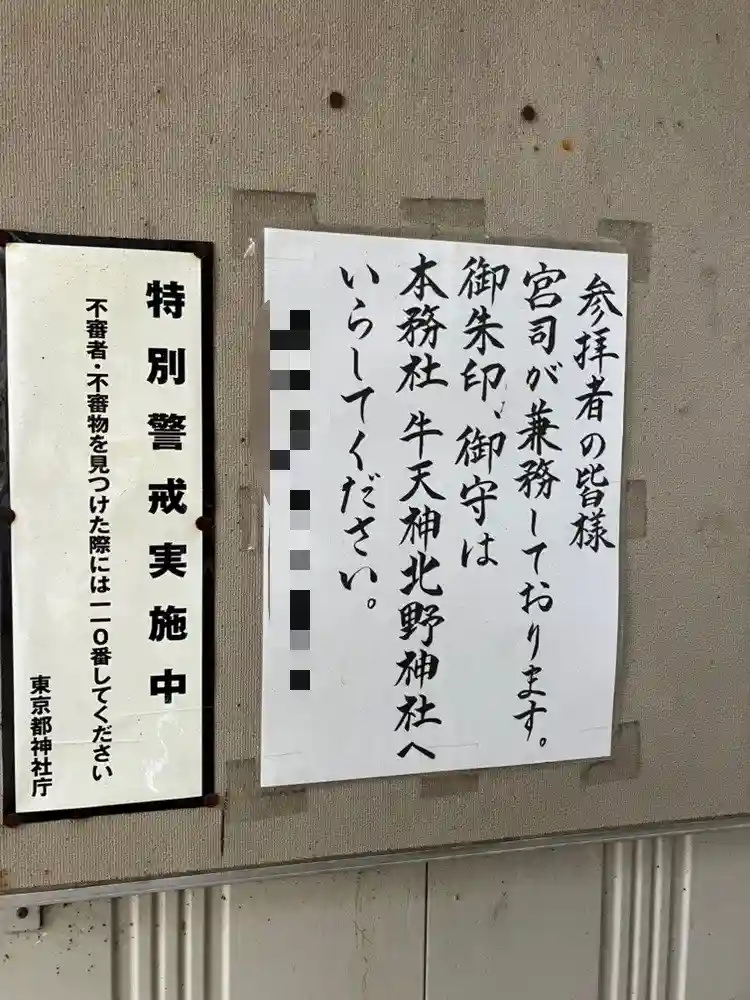 参拝者の皆様
宮司が兼務しております。
御朱印、御守は
本務社 牛天神北野神社へ
いらしてください。
特別警戒実施中
不審者・不審物を見つけた際には一一〇番してください
東京都神社庁